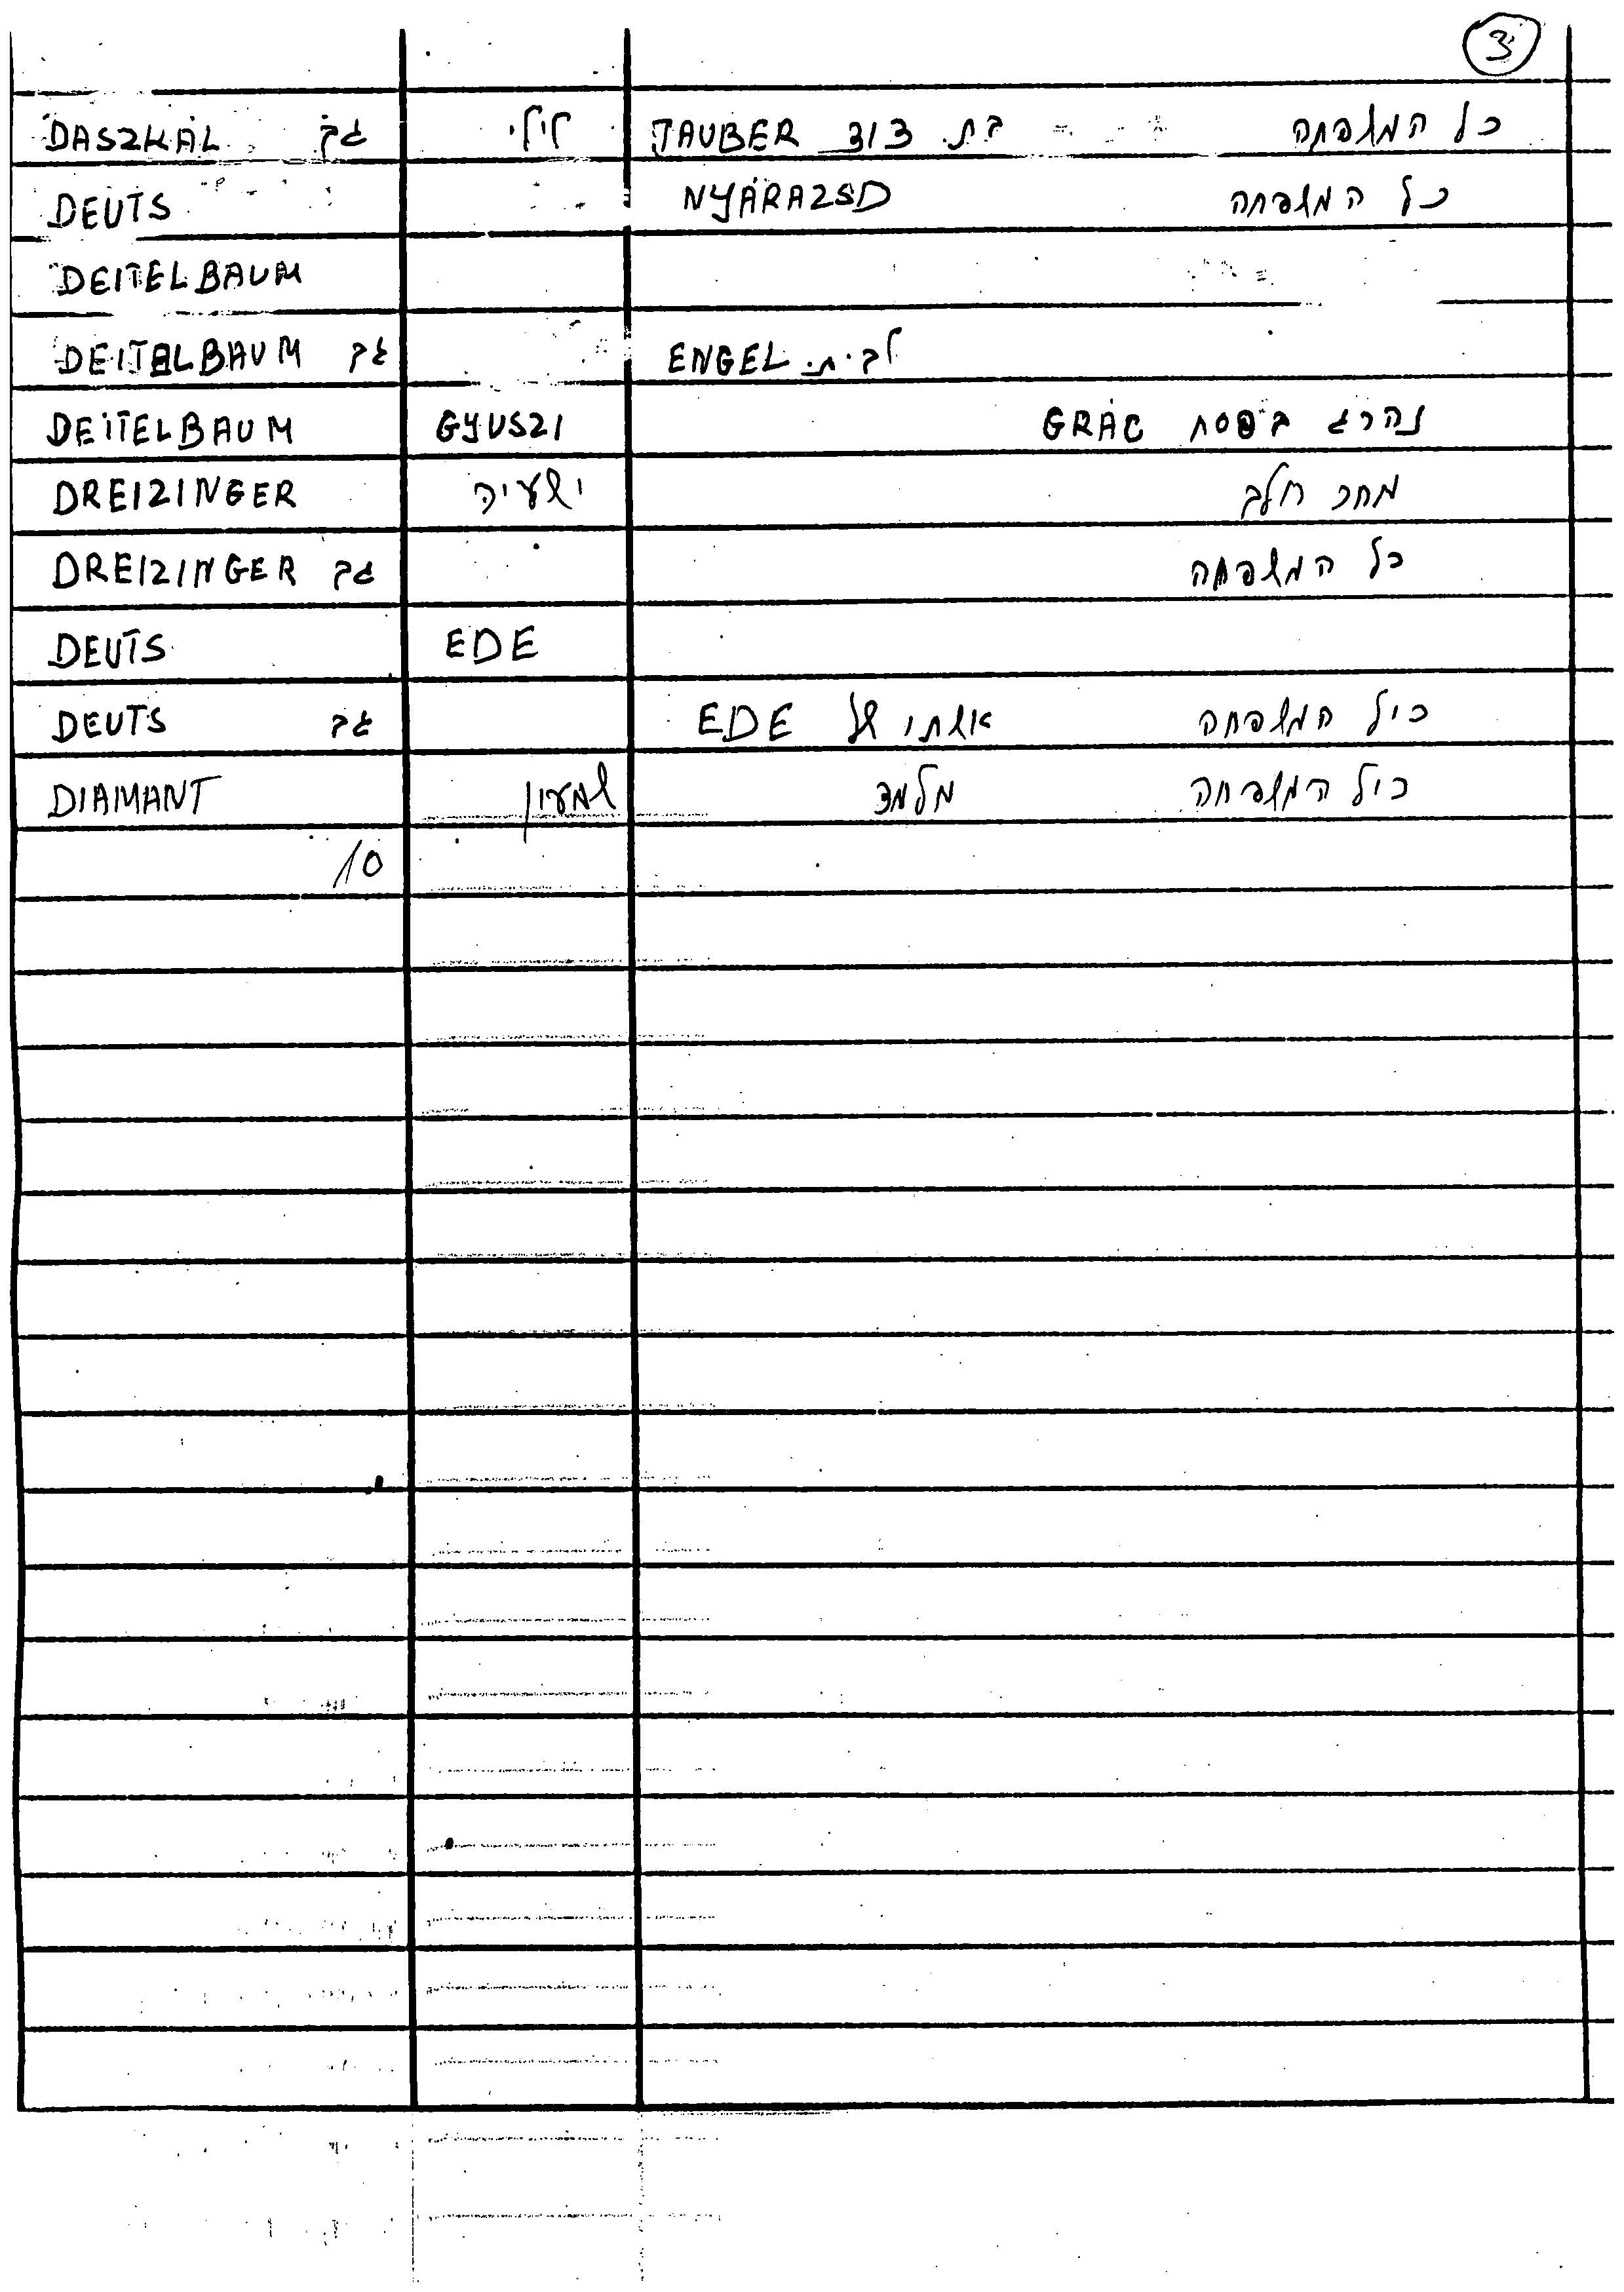 3
DASZKÁL גב לילי TAUBER דוד בת כל המשפחה
DEUTS NYÁRAZSD כל המשפחה
DEITELBAUM
DEITELBAUM גב ENGEL לבית
DEITELBAUM GYUSZI GRÁC נהרג בפסח
DREIZINGER ישעיה מחכ חלב
DREIZINGER גב כל המשפחה
DEUTS EDE
DEUTS גב EDE אשתו של כול המשפחה
DIAMANT שמעון מלמד כול המשפחה
10